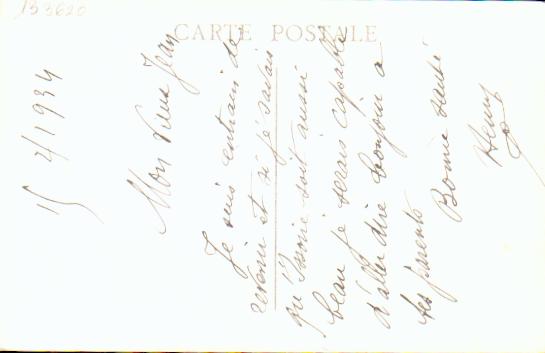 133620
CARTE POSTALE
15/4/1934
Mon vieux Jean
Je suis entrain de
revenir et si je savais
qu'Issoire soit aussi
beau je serais capable
d'aller dire bonjour a
tes parents
Bonne santé
Henry